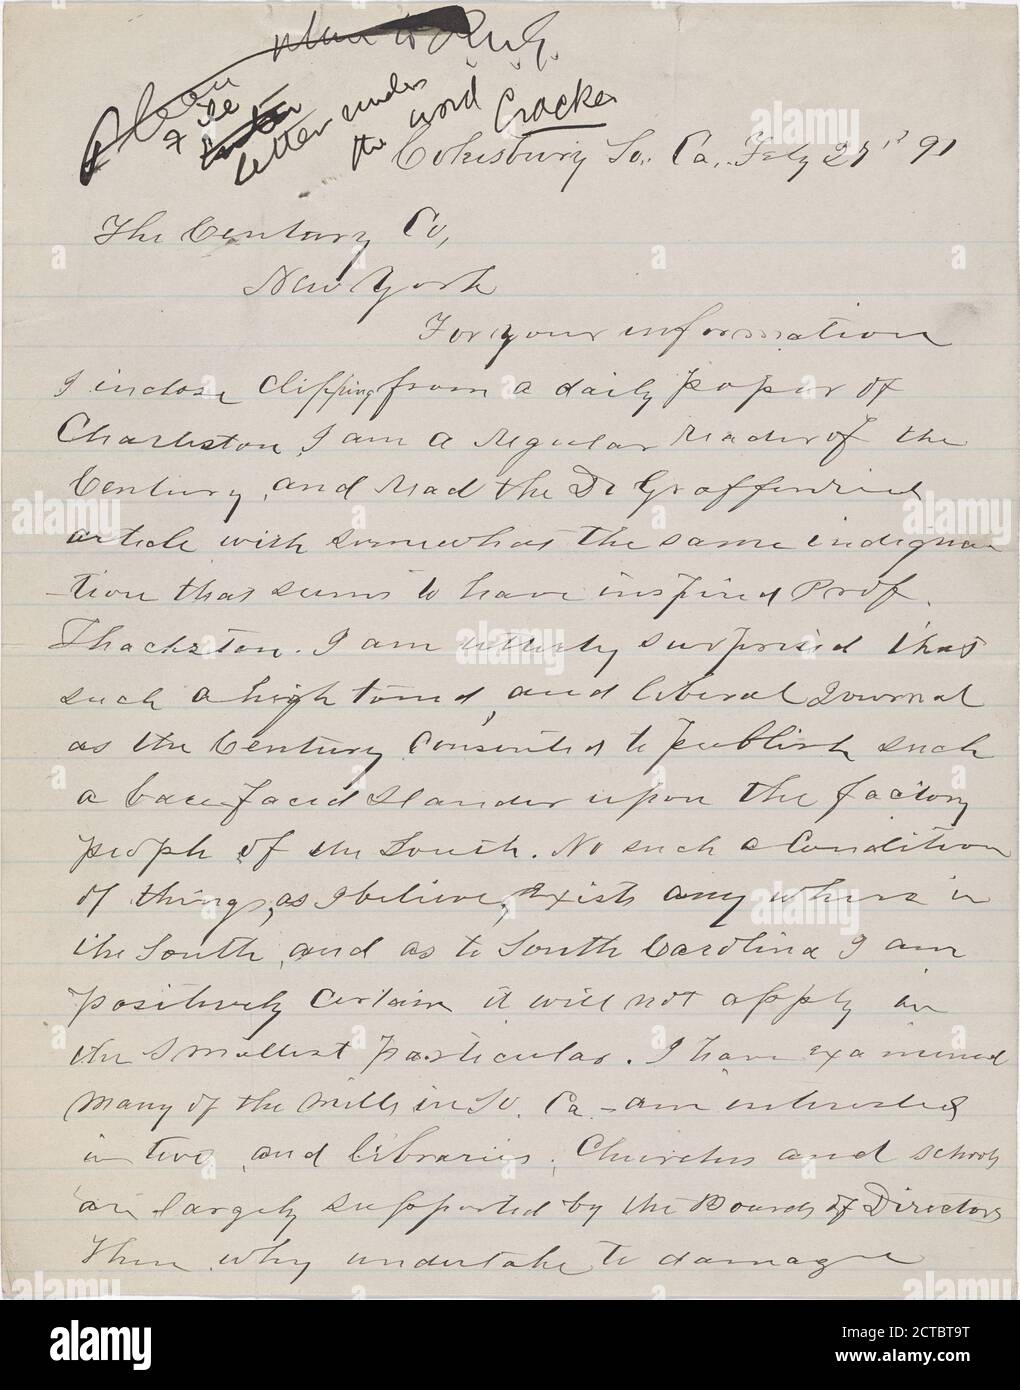 Please
file
letter under
the word Cracker
Cokesbury So. Ca. Feby 27th 91
The Century Co,
New York
For your information
I inclose clipping from a daily paper of
Charleston, I am a regular reader of the
Century, and read the De Graffenried
article with somewhat the same indigna
-tion that seems to have inspired Prof.
Thackston. I am utterly surprised that
such a high toned, and liberal Journal
as the Century consented to publish such
a bare-faced slander upon the factory
people of the South. No such a condition
of things, as I believe, exists any where in
the South, and as to South Carolina I am
positively certain it will not apply in
the smallest particular. I have examined
many of the mills in So. Ca. - am interested
in two, and libraries, Churches and schools
are largely supported by the Boards of Directors
Then why undertake to damage
alamy
Image ID: 2CTBT9T
www.alamy.com